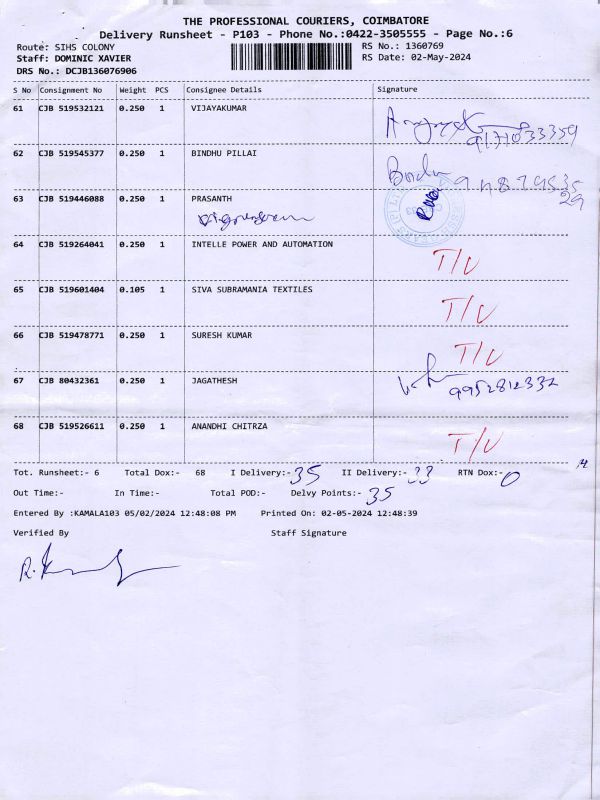 THE PROFESSIONAL COURIERS, COIMBATORE
Delivery Runsheet - P103 - Phone No.:0422-3505555 - Page No.:6
Route: SIHS COLONY RS No.: 1360769
Staff: DOMINIC XAVIER RS Date: 02-May-2024
DRS No.: DCJB136076906
S No Consignment No Weight PCS Consignee Details Signature
61 CJB 519532121 0.250 1 VIJAYAKUMAR
62 CJB 519545377 0.250 1 BINDHU PILLAI
63 CJB 519446088 0.250 1 PRASANTH
64 CJB 519264041 0.250 1 INTELLE POWER AND AUTOMATION T/U
65 CJB 519601404 0.105 1 SIVA SUBRAMANIA TEXTILES T/U
66 CJB 519478771 0.250 1 SURESH KUMAR T/U
67 CJB 80432361 0.250 1 JAGATHESH 9952812332
68 CJB 519526611 0.250 1 ANANDHI CHITRZA T/U
Tot. Runsheet:- 6 Total Dox:- 68 I Delivery:- 35 II Delivery:- 33 RTN Dox:- 0
Out Time:- In Time:- Total POD:- Delvy Points:- 35
Entered By :KAMALA103 05/02/2024 12:48:08 PM Printed On: 02-05-2024 12:48:39
Verified By Staff Signature